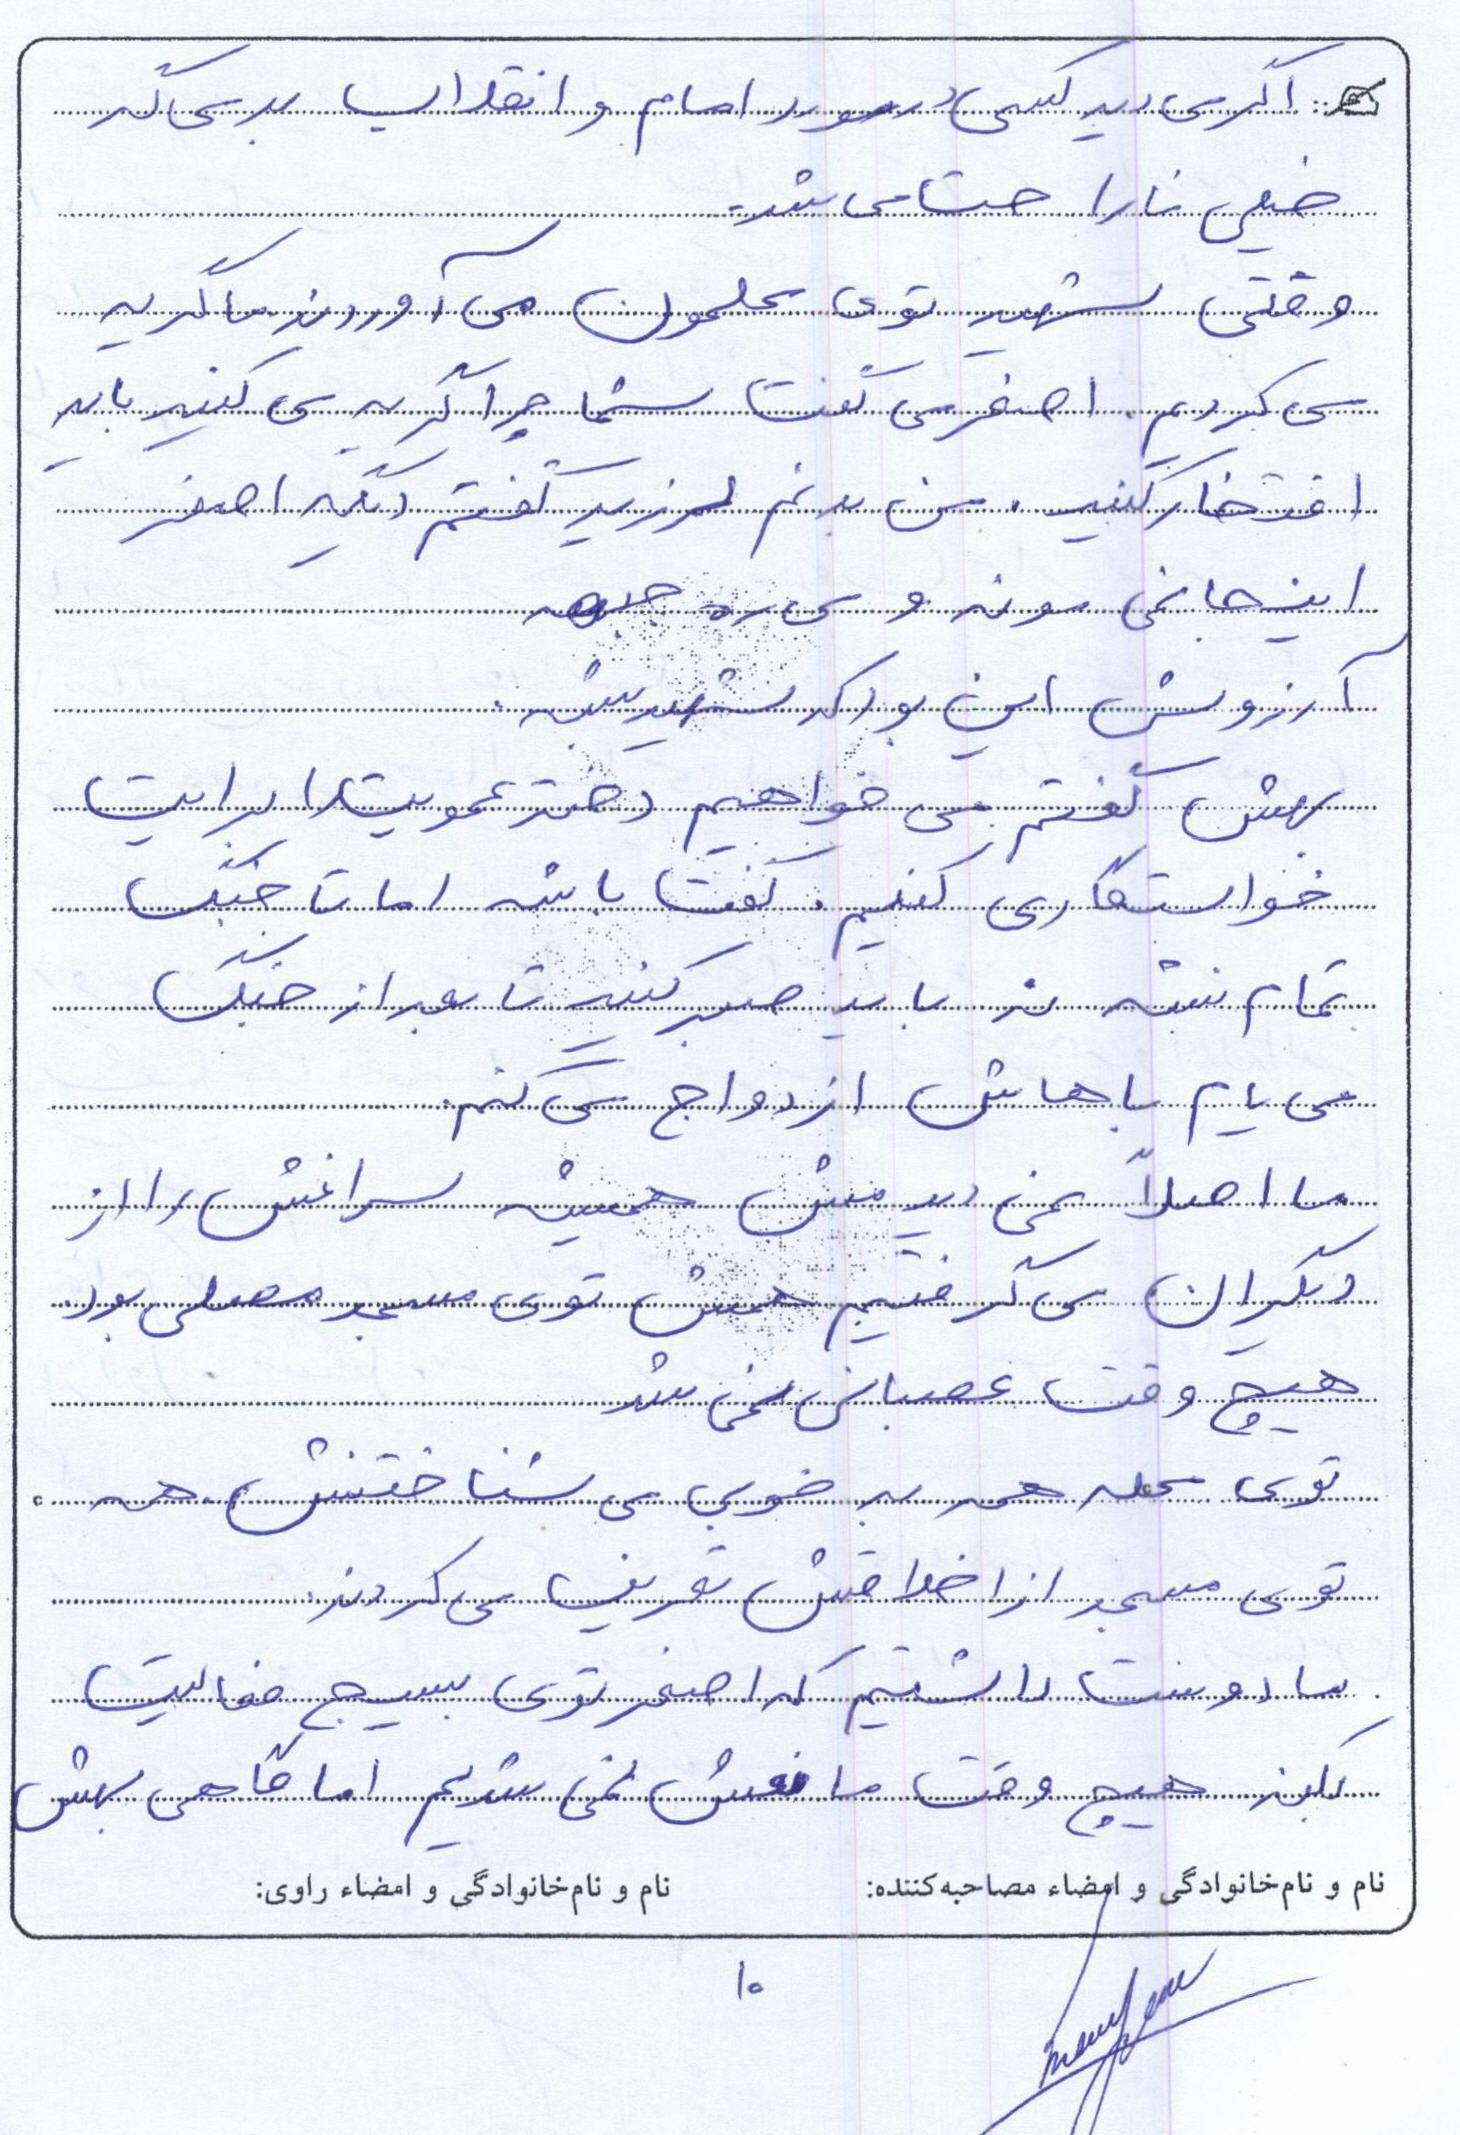 اگر می دید کسی در مورد امام و انقلاب بد می گه
خیلی ناراحت می شد.
وقتی شهید توی محلمون می آوردند ما گریه
می کردیم. اصغر می گفت شما چرا گریه می کنید باید
افتخار کنید. من بدنم لرزید گفتم دیگه اصغر
این جا نمی مونه و می ره جبهه
آرزویش این بود که شهید بشه.
بهش گفتم می خواهیم دختر عمویت را برایت
خواستگاری کنیم. گفت باشه اما تا جنگ
تمام نشه نه باید صبر کنید تا بعد از جنگ
می یایم باهاش ازدواج می کنم.
ما اصلاً نمی دیدمش همیشه سراغش را از
دیگران می گرفتیم همش توی مسجد مصلی بود.
هیچ وقت عصبانی نمی شد
توی محله همه به خوبی می شناختنش. همه
توی مسجد از اخلاقش تعریف می کردند.
ما دوست داشتیم که اصغر توی بسیج فعالیت
بکند هیچ وقت مانعش نمی شدیم اما گاهی بهش
نام و نام‌خانوادگی و امضاء مصاحبه‌کننده: نام و نام‌خانوادگی و امضاء راوی:
۱۰